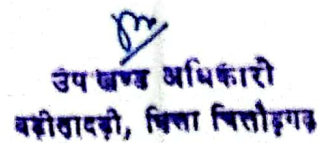 उप खण्ड अधिकारी
बड़ीसादड़ी, जिला चित्तौड़गढ़